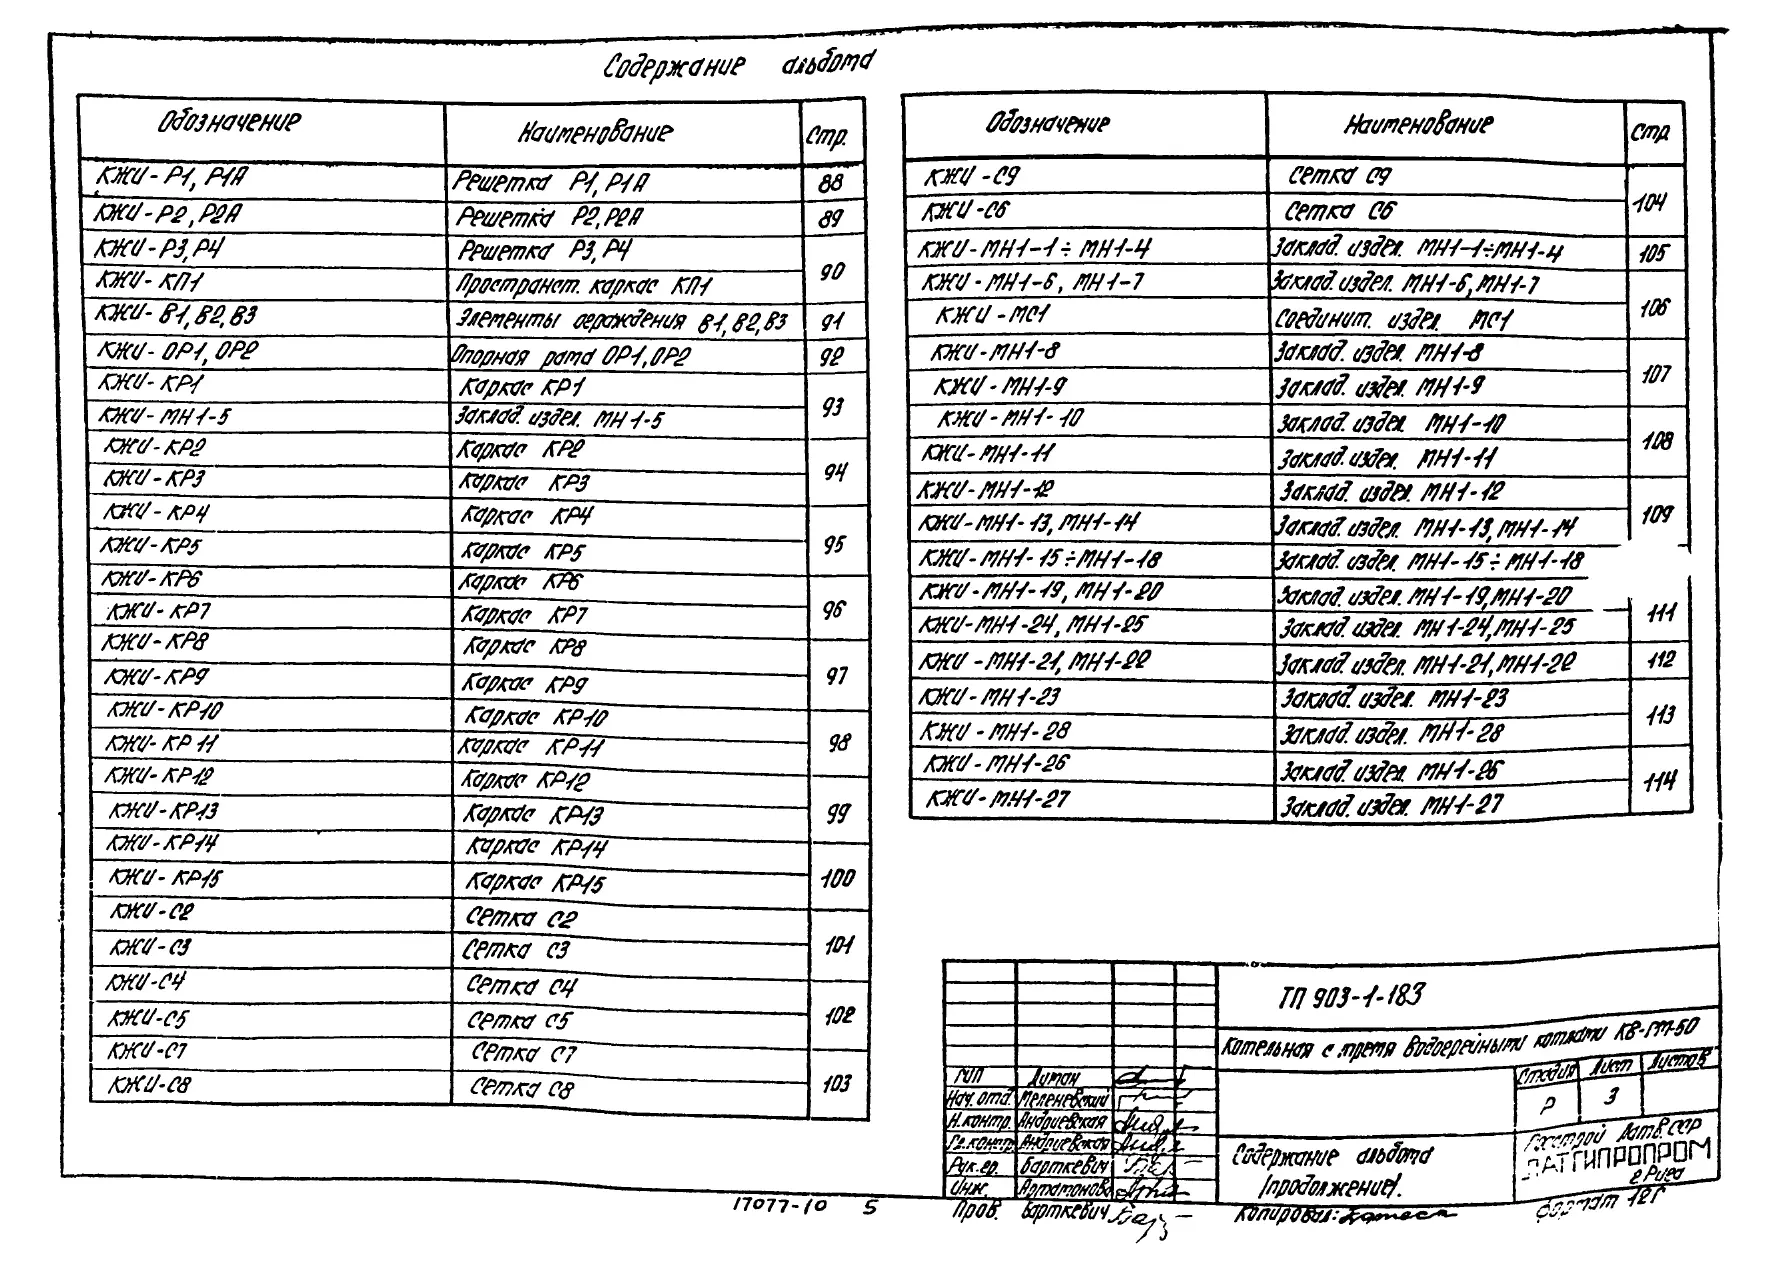 Содержание альбома
Обозначение Наименование Стр.
КЖИ-Р1, Р1А Решетка Р1, Р1А 88
КЖИ-Р2, Р2А Решетка Р2, Р2А 89
КЖИ-Р3, Р4 Решетка Р3, Р4 90
КЖИ-КП1 Пространст. каркас КП1
КЖИ-В1, В2, В3 Элементы ограждения В1, В2, В3 91
КЖИ-ОР1, ОР2 Опорная рама ОР1, ОР2 92
КЖИ-КР1 Каркас КР1 93
КЖИ-МН1-5 Заклад. издел. МН1-5
КЖИ-КР2 Каркас КР2 94
КЖИ-КР3 Каркас КР3
КЖИ-КР4 Каркас КР4 95
КЖИ-КР5 Каркас КР5
КЖИ-КР6 Каркас КР6 96
КЖИ-КР7 Каркас КР7
КЖИ-КР8 Каркас КР8 97
КЖИ-КР9 Каркас КР9
КЖИ-КР10 Каркас КР10 98
КЖИ-КР11 Каркас КР11
КЖИ-КР12 Каркас КР12 99
КЖИ-КР13 Каркас КР13
КЖИ-КР14 Каркас КР14 100
КЖИ-КР15 Каркас КР15
КЖИ-С2 Сетка С2 101
КЖИ-С3 Сетка С3
КЖИ-С4 Сетка С4 102
КЖИ-С5 Сетка С5
КЖИ-С7 Сетка С7 103
КЖИ-С8 Сетка С8
Обозначение Наименование Стр.
КЖИ-С9 Сетка С9 104
КЖИ-С6 Сетка С6
КЖИ-МН1-1÷МН1-4 Заклад. издел. МН1-1÷МН1-4 105
КЖИ-МН1-6, МН1-7 Заклад. издел. МН1-6, МН1-7 106
КЖИ-МС1 Соединит. издел. МС1
КЖИ-МН1-8 Заклад. издел. МН1-8 107
КЖИ-МН1-9 Заклад. издел. МН1-9
КЖИ-МН1-10 Заклад. издел. МН1-10 108
КЖИ-МН1-11 Заклад. издел. МН1-11
КЖИ-МН1-12 Заклад. издел. МН1-12 109
КЖИ-МН1-13, МН1-14 Заклад. издел. МН1-13, МН1-14
КЖИ-МН1-15÷МН1-18 Заклад. издел. МН1-15÷МН1-18
КЖИ-МН1-19, МН1-20 Заклад. издел. МН1-19, МН1-20 111
КЖИ-МН1-24, МН1-25 Заклад. издел. МН1-24, МН1-25
КЖИ-МН1-21, МН1-22 Заклад. издел. МН1-21, МН1-22 112
КЖИ-МН1-23 Заклад. издел. МН1-23 113
КЖИ-МН1-28 Заклад. издел. МН1-28
КЖИ-МН1-26 Заклад. издел. МН1-26 114
КЖИ-МН1-27 Заклад. издел. МН1-27
ТП 903-1-183
Котельная с тремя водогрейными котлами КВ-ГМ-50
Стадия Лист Листов
Р 3
ГИП Лиман
Нач. отд. Меленевский
Н. контр. Андриевская
Гл. констр. Андриевская
Рук. гр. Барткевич
Инж. Артамонова
Пров. Барткевич
Содержание альбома
(продолжение).
Госстрой Латв. ССР
ЛАТГИПРОПРОМ
г. Рига
17077-10 5
Копировал:
формат 12Г